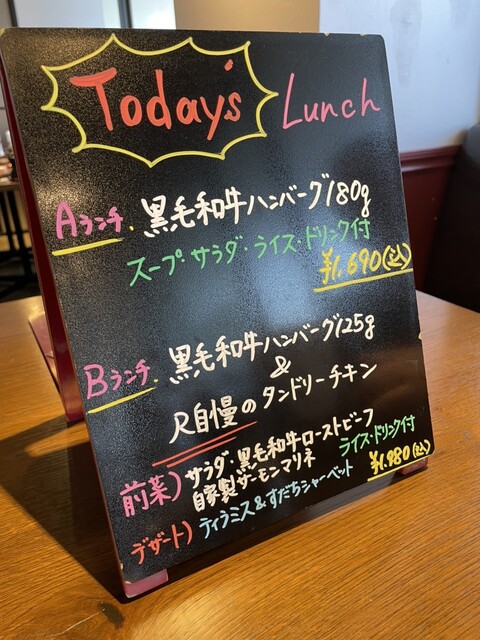 Today's Lunch
Aランチ. 黒毛和牛ハンバーグ180g
スープ・サラダ・ライス・ドリンク付
¥1,690(込)
Bランチ. 黒毛和牛ハンバーグ125g
&
R自慢のタンドリーチキン
前菜) サラダ・黒毛和牛ローストビーフ
自家製サーモンマリネ
ライス・ドリンク付
¥1,980(込)
デザート) ティラミス&すだちシャーベット